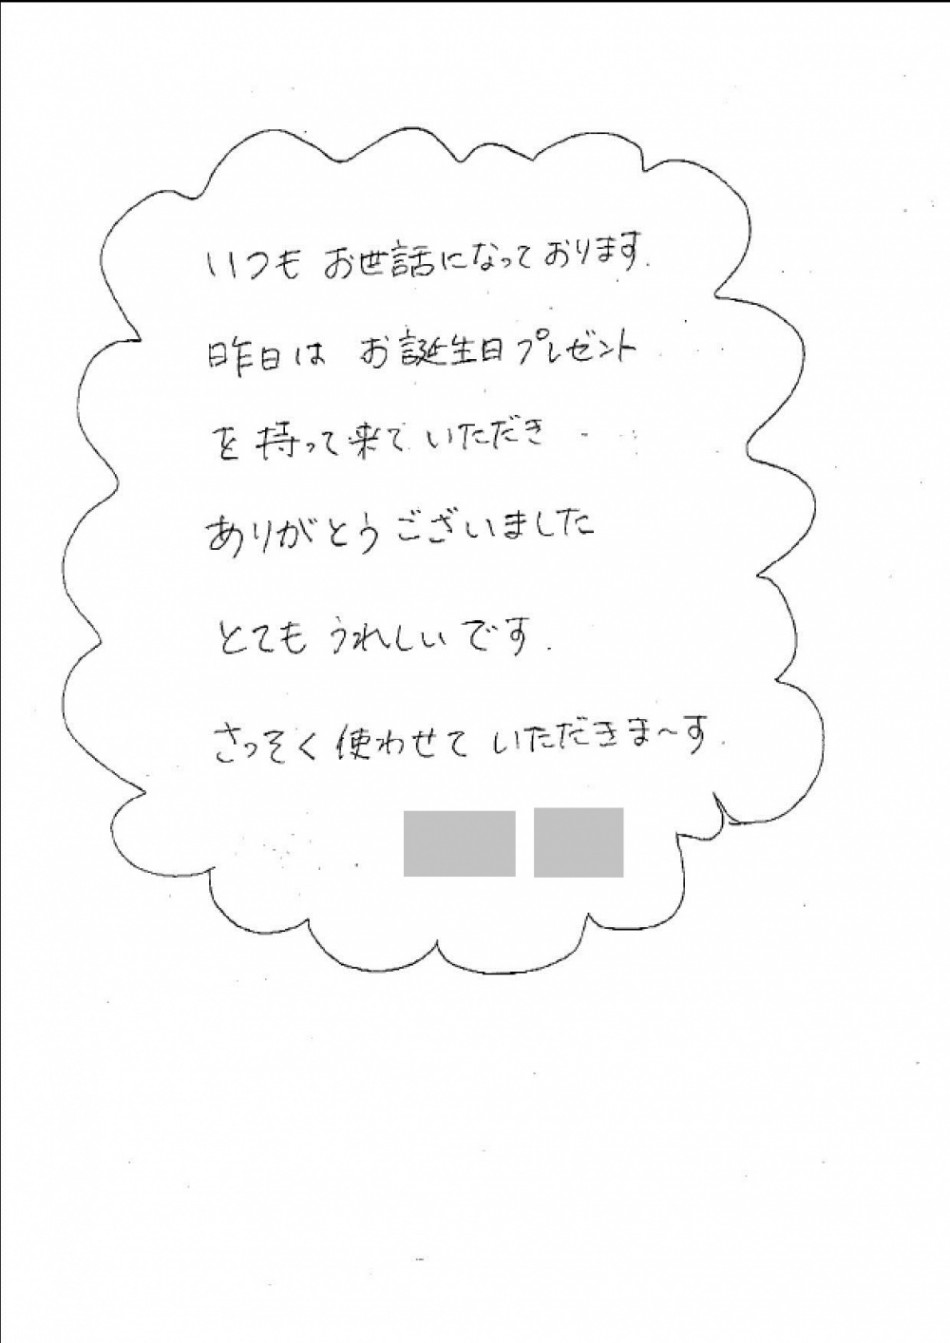 いつも お世話になっております.
昨日は お誕生日プレゼント
を 持って来て いただき
ありがとうございました
とても うれしいです.
さっそく 使わせて いただきま〜す.